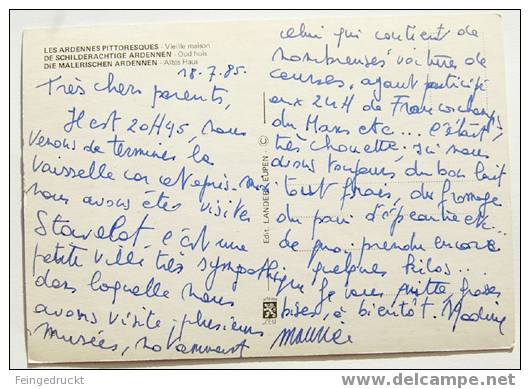 LES ARDENNES PITTORESQUES - Vieille maison
DE SCHILDERACHTIGE ARDENNEN - Oud huis
DIE MALERISCHEN ARDENNEN - Altes Haus
18.7.85.
Très chers parents,
Il est 20H45, nous
venons de terminer la
vaisselle car cet après-midi
nous avons été visiter
Stavelot, c'est une
petite ville très sympathique
dans laquelle nous
avons visité plusieurs
musées, notamment
celui qui contient de
nombreuses voitures de
courses, ayant participé
aux 24H de Francorchamps,
du Mans etc... c'était
très chouette, ici nous
avons toujours du bon lait
tout frais, du fromage
du pain d'épeautre etc...
de quoi prendre encore
quelques kilos...
Je vous quitte, grosses
bises, à bientôt. Nadine
Maurice
Edit. LANDER - EUPEN ©
Feingedruckt
www.delcampe.net